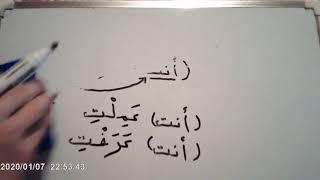 (أنتـ
(أنت) عَمِلْتِ
(أنت) عَرَفْتِ
2020/01/07 22:53:43